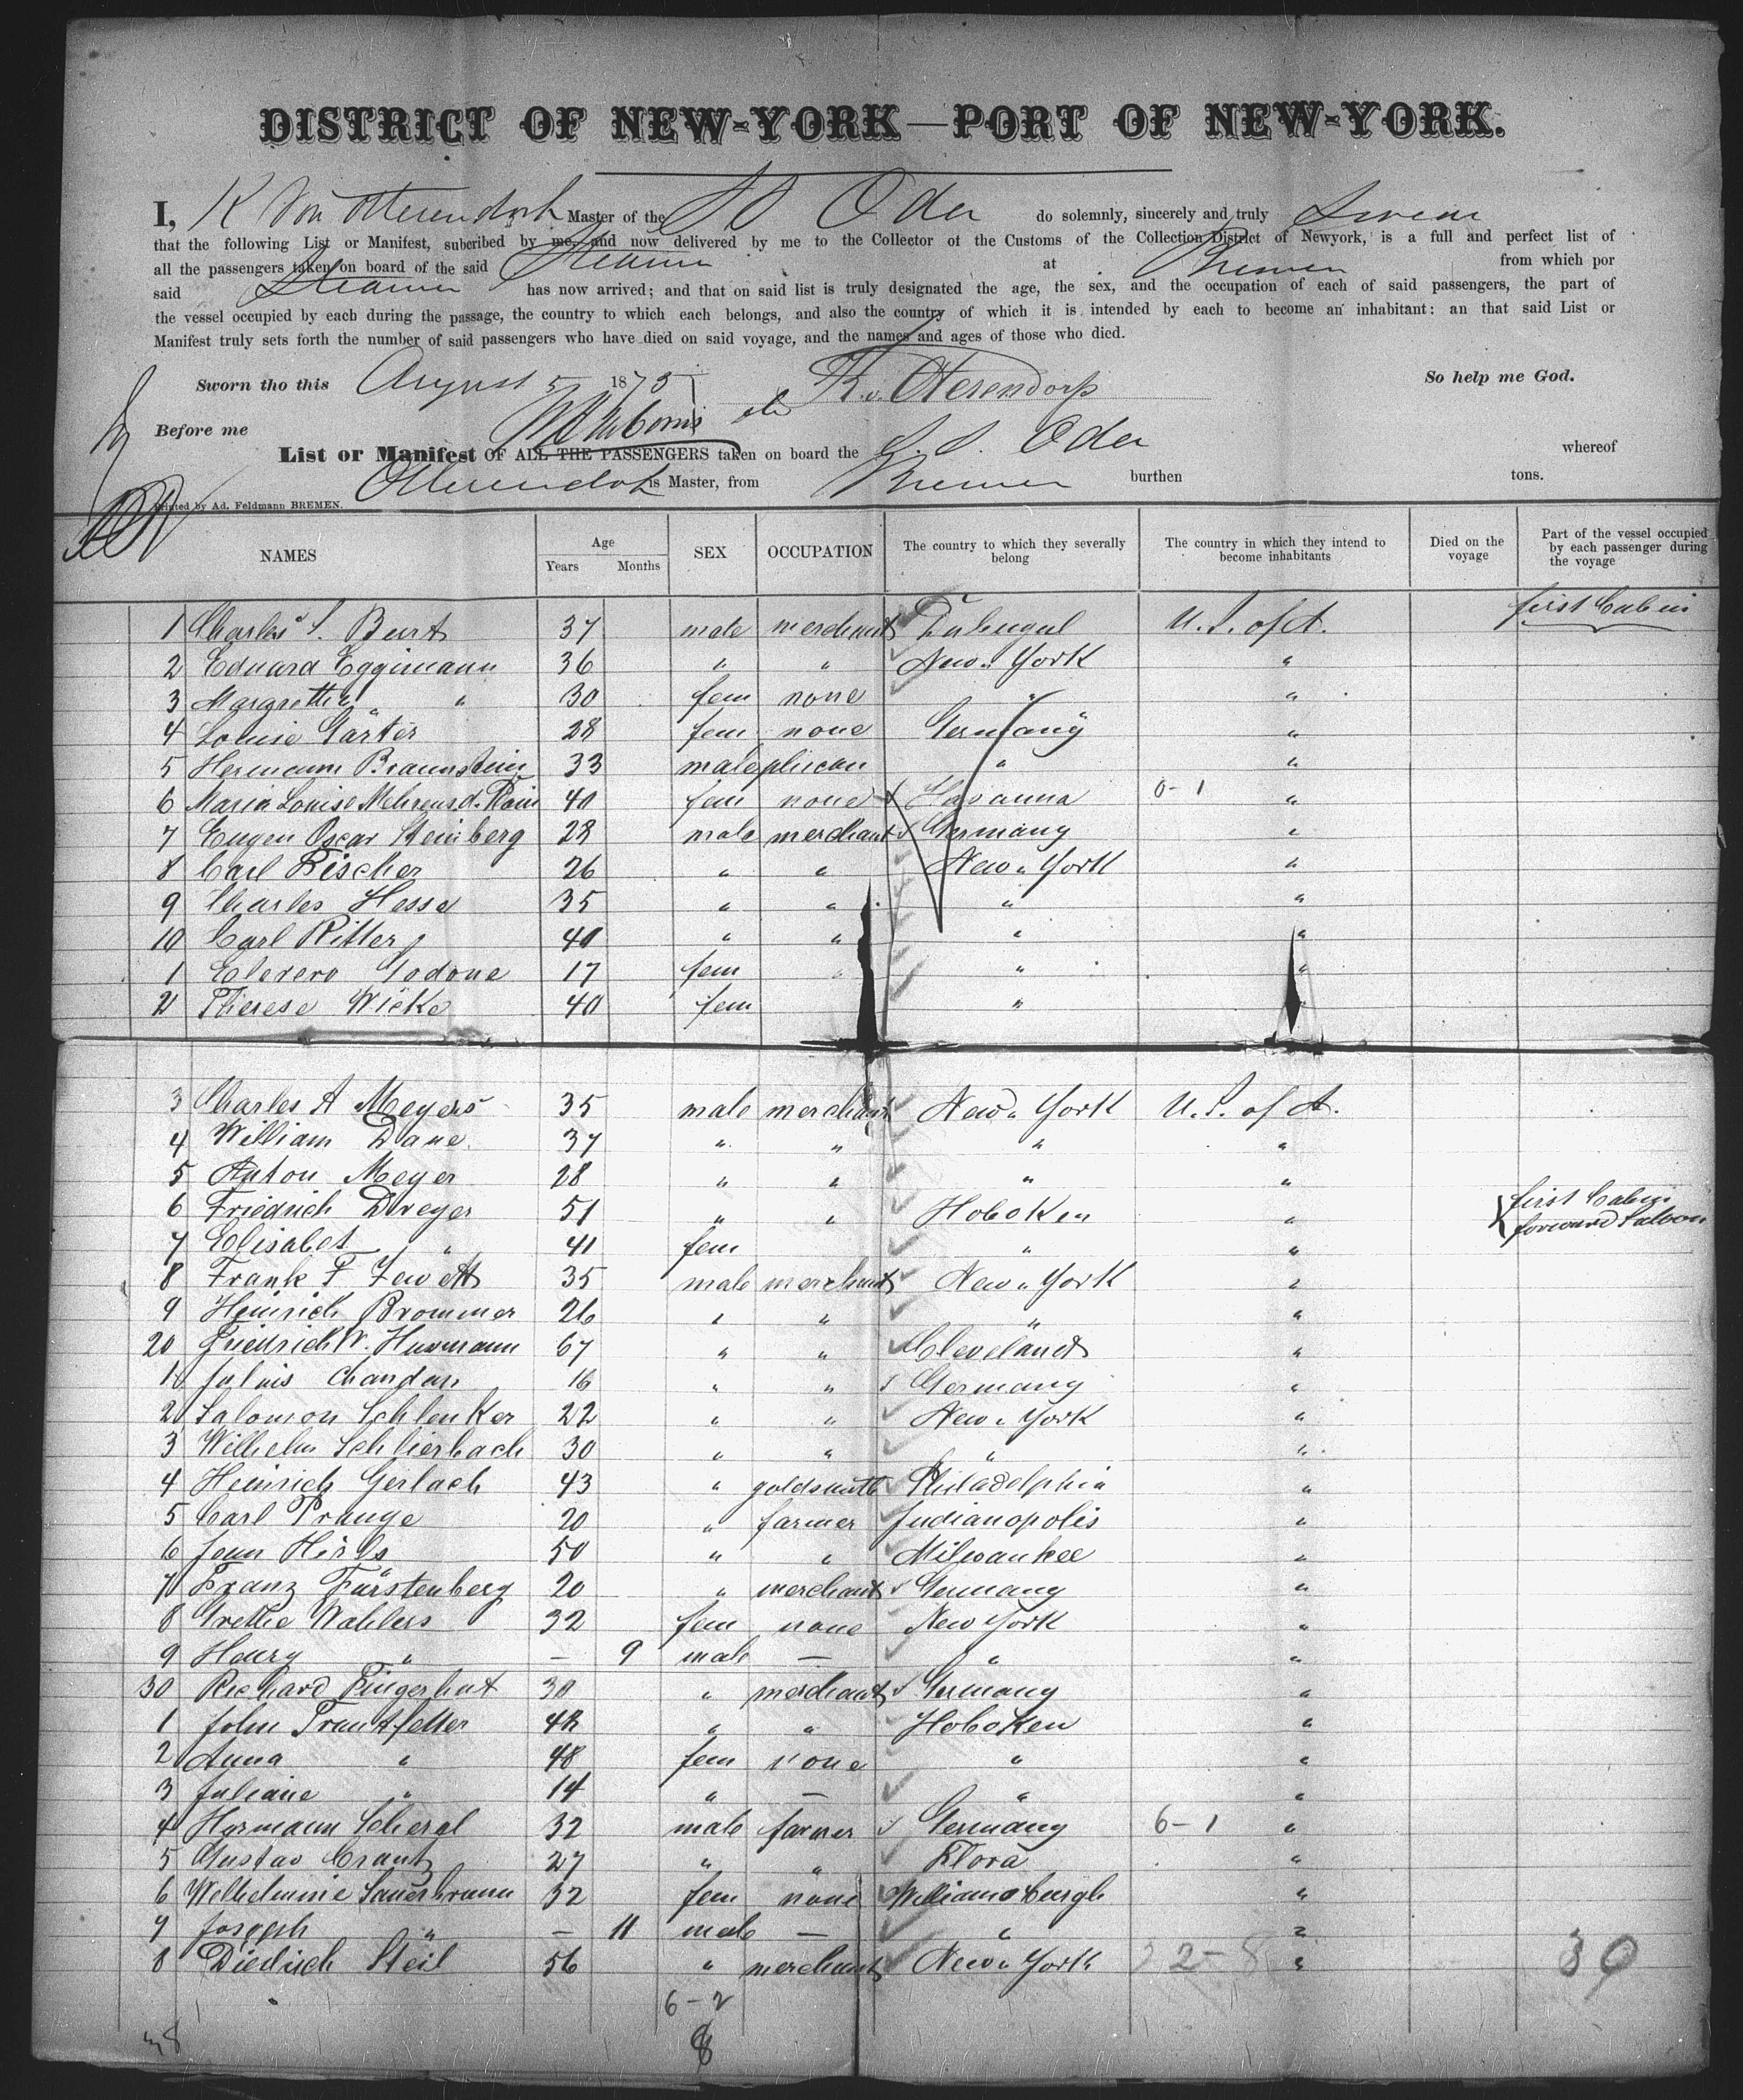 DISTRICT OF NEW-YORK—PORT OF NEW-YORK.
I, K Von Oterendorp Master of the SS Oder do solemnly, sincerely and truly Swear
that the following List or Manifest, subcribed by me, and now delivered by me to the Collector of the Customs of the Collection District of Newyork, is a full and perfect list of
all the passengers taken on board of the said Steamer at Bremen from which por
said Steamer has now arrived; and that on said list is truly designated the age, the sex, and the occupation of each of said passengers, the part of
the vessel occupied by each during the passage, the country to which each belongs, and also the country of which it is intended by each to become an inhabitant: an that said List or
Manifest truly sets forth the number of said passengers who have died on said voyage, and the names and ages of those who died.
Sworn tho this August 5 1875 K. v. Oterendorp So help me God.
Before me
List or Manifest OF ALL THE PASSENGERS taken on board the S. S. Oder whereof
Oterendorp is Master, from Bremen burthen tons.
Printed by Ad. Feldmann BREMEN.
NAMES Age Years Months SEX OCCUPATION The country to which they severally belong The country in which they intend to become inhabitants Died on the voyage Part of the vessel occupied by each passenger during the voyage
1 Charles S. Burt 37 male merchant U. S. of A. first Cabin
2 Eduard Eggimann 36 " " New-York "
3 Margretha " 30 fem none " "
4 Louise Gärter 28 fem none Germany "
5 Hermann Braunstein 33 male " "
6 Maria Louise Mehrens d. 40 fem none Havanna 0-1 "
7 Eugen Oscar Steinberg 28 male merchant Germany "
8 Carl Fischer 26 " " New-York "
9 Charles Hesse 35 " " " "
10 Carl Ritter 40 " " " "
1 Godone 17 fem " " "
2 Therese Wicke 40 fem "
3 Charles A Meyers 35 male merchant New-York U. S. of A.
4 William Dane 37 " " " "
5 Anton Meyer 28 " " " "
6 Friedrich Dreyer 51 " " Hoboken " first Cabin
7 Elisabet " 41 fem " " forward Saloon
8 Frank F Jewett 35 male merchant New-York "
9 Heinrich Brommer 26 " " " "
20 Friedrich W. 67 " " Cleveland "
1 Julius Chandan 16 " " Germany "
2 Salomon Schlenker 22 " " New-York "
3 Wilhelm Schlierbach 30 " " " "
4 Heinrich Gerlach 43 " goldsmith Philadelphia "
5 Carl Prange 20 " farmer Indianopolis "
6 Jean 50 " " Milwaukee "
7 Franz Fürstenberg 20 " merchant Germany "
8 Grethe Wahlers 32 fem none New York "
9 Henry " — 9 male — " "
30 Richard Fingerhut 30 " merchant Germany "
1 John " " Hoboken "
2 Anna " 48 fem none " "
3 Juliane " 14 " — " "
4 Hermann Scheral 32 male farmer Germany 6-1 "
5 Gustav Crantz 27 " " Flora "
6 Welhelmine Sauerbrunn 32 fem none Williamsburgh "
7 Joseph " — 11 male — " "
8 Diedrich Steil 56 " merchant New-York 2-8 " 30
6-2
38 8